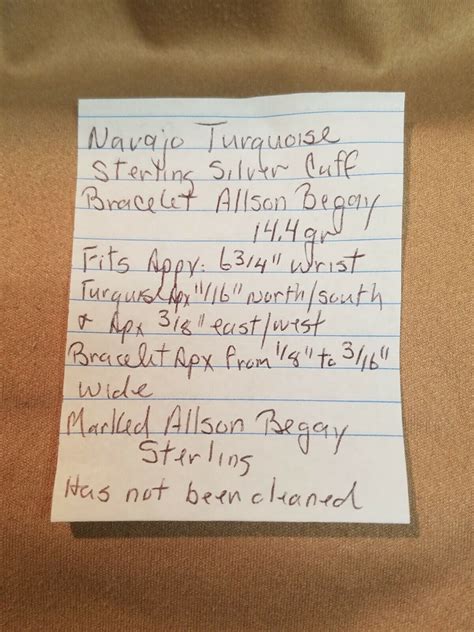 Navajo Turquoise
Sterling Silver Cuff
Bracelet Allson Begay
14.4 gr
Fits Appx: 6 3/4" wrist
Turquoise Apx 11/16" north/south
& Apx 3/8" east/west
Bracelet Apx from 1/8" to 3/16"
wide
Marked Allson Begay
Sterling
Has not been cleaned